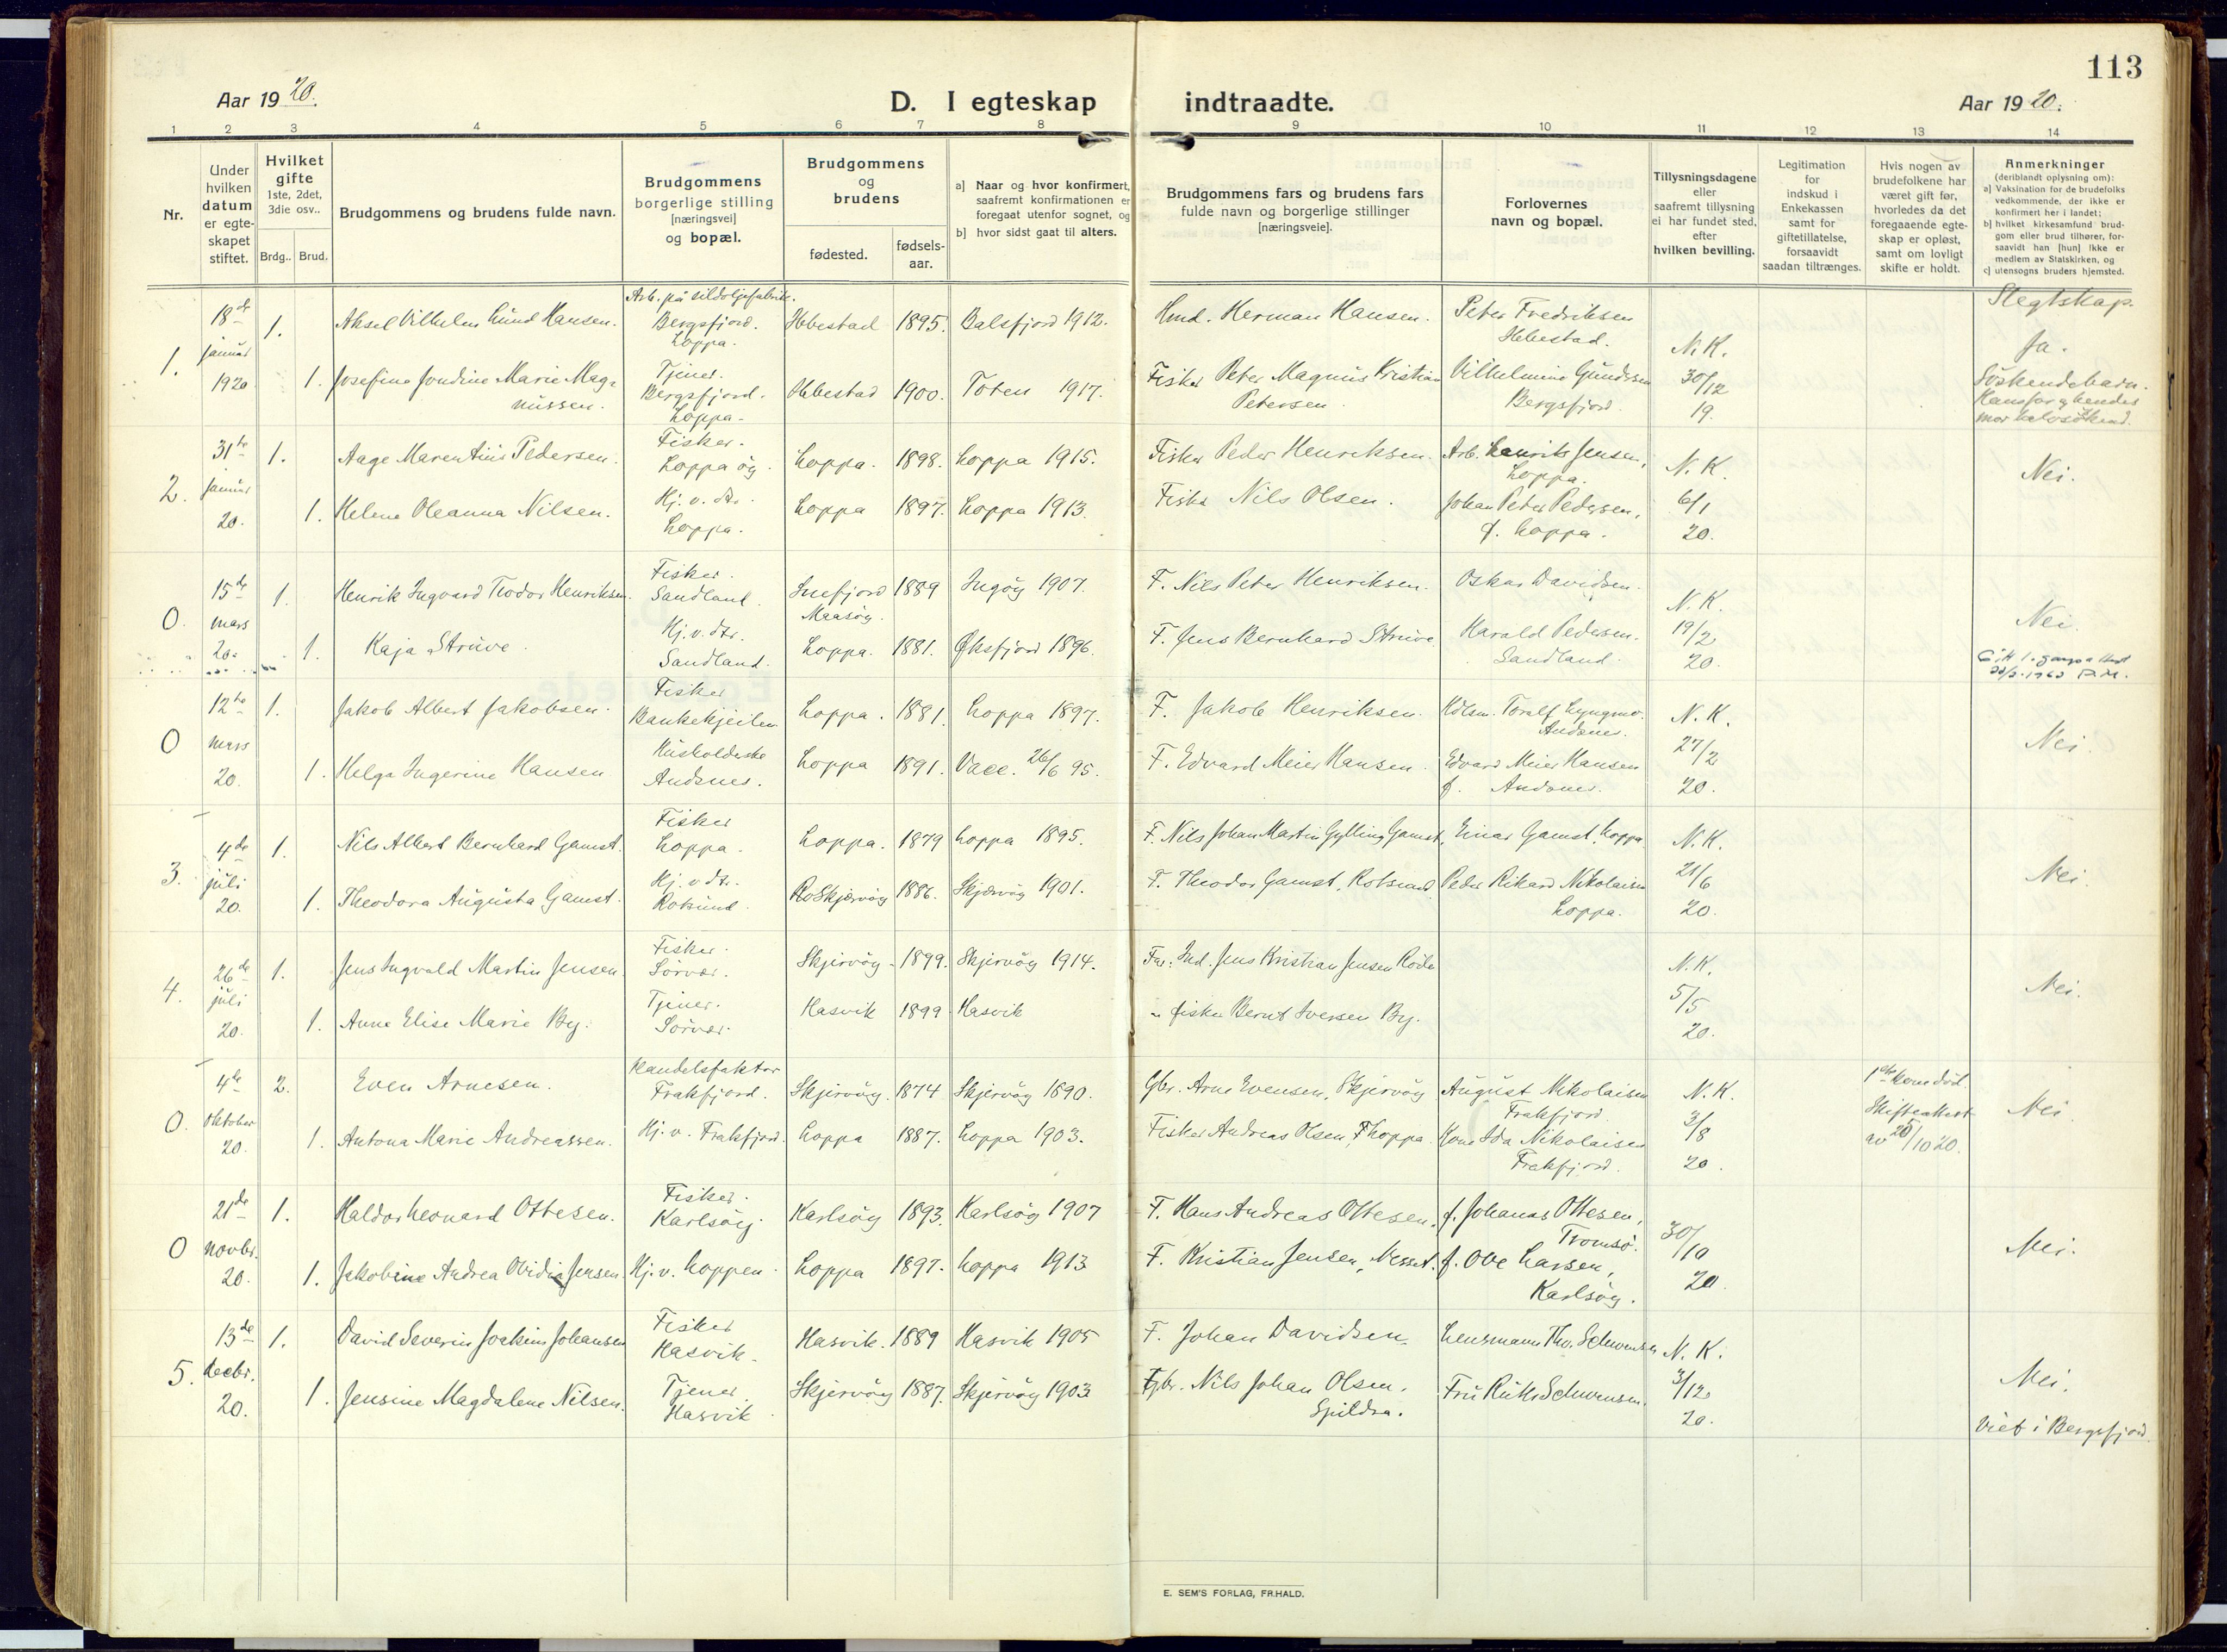 113
Aar 1920.
D. I egteskap indtraadte.
Aar 1920.
1 2 3 4 5 6 7 8 9 10 11 12 13 14
Nr.
Under hvilken datum er egte-skapet stiftet.
Hvilket gifte 1ste, 2det, 3die osv..
Brdg.. Brud.
Brudgommens og brudens fulde navn.
Brudgommens borgerlige stilling [næringsvei] og bopæl.
Brudgommens og brudens
fødested.
fødsels-aar.
a] Naar og hvor konfirmert, saafremt konfirmationen er foregaat utenfor sognet, og
b] hvor sidst gaat til alters.
Brudgommens fars og brudens fars fulde navn og borgerlige stillinger [næringsveie].
Forlovernes navn og bopæl.
Tillysningsdagene eller saafremt tillysning ei har fundet sted, efter hvilken bevilling.
Legitimation for indskud i Enkekassen samt for giftetillatelse, forsaavidt saadan tiltrænges.
Hvis nogen av brudefolkene har været gift før, hvorledes da det foregaaende egte-skap er opløst, samt om lovligt skifte er holdt.
Anmerkninger
(deriblandt oplysning om):
a] Vaksination for de brudefolks vedkommende, der ikke er konfirmert her i landet;
b] hvilket kirkesamfund brud-gom eller brud tilhører, for-saavidt han [hun] ikke er medlem av Statskirken, og
c] utensogns bruders hjemsted.
1. 18de januar 1920
1. Aksel Vilhelm Lund Hansen. Arb. på sildoljefabrik. Bergsfjord. Loppa. Ibbestad 1895. Balsfjord 1912. Hmd. Herman Hansen. Peter Fredriksen Ibbestad. N.K. 30/12 19. Slegtskap. Ja.
1. Josefine Jondine Marie Mag-nussen. Tjener. Bergsfjord. Loppa. Ibbestad 1900. Toten 1917. Fisker Peter Magnus Kristian Petersen. Vilhelmine Gundersen Bergsfjord. Søskendebarn.
2. 31te januar 20.
1. Aage Marentius Pedersen. Fisker. Loppa øy. Loppa. 1898. Loppa 1915. Fisker Peder Henriksen. Arb. Henrik Jensen, Loppa. N.K. 6/1 20. Nei.
1. Helene Oleanna Nilsen. Hj. v. dtr. Loppa. Loppa 1897. Loppa 1913. Fisker Nils Olsen. Johan Peter Pedersen, f. Loppa.
0. 15de mars 20.
1. Henrik Ingvard Teodor Henriksen. Fisker. Sandland. Snefjord Maasøy. 1889 Ingøy 1907. F. Nils Peter Henriksen. Oskar Davidsen. N.K. 19/2 20. Nei.
1. Kaja Strüve. Hj. v. dtr. Sandland. Loppa. 1881. Øksfjord 1896. F. Jens Bernhard Strüve. Harald Pedersen. Sandland.
0 12te mars 20.
1. Jakob Albert Jakobsen. Fisker Bankekjeilen Loppa. 1881. Loppa 1897. F. Jakob Henriksen. Toralf Lyngmo. Andsnes. N.K. 27/2 20. Nei.
1. Helga Ingerine Hansen Husholderske Andsnes. Loppa 1891. Vacc. 26/6 95. F. Edvard Meier Hansen. Edvard Meier Hansen f. Andsnes.
3. 4de juli 20.
1. Nils Albert Bernhard Gamst. Fisker Loppa. Loppa. 1879 Loppa 1895. F. Nils Johan Martin Gylling Gamst. Einar Gamst, Loppa. N.K. 21/6 20. Nei.
1. Theodora Augusta Gamst. Hj. v dtr. Rotsund. Skjærvøy 1886. Skjærvøy 1901. F. Theodor Gamst, Rotsund. Peder Rikard Nikolaisen Loppa.
4. 26de juli 20.
1. Jens Ingvald Martin Jensen. Fisker. Sørvær. Skjervøy 1899. Skjervøy 1914. Jens Kristian Jensen N.K. 5/5 20. Nei.
1. Anna Elise Marie By. Tjener. Sørvær. Hasvik 1899 Hasvik fisker Bernt Iversen By.
0. 4de oktober 20.
2. Even Arnesen. Handelsfaktor Frakfjord. Skjervøy. 1874 Skjervøy 1890. Gbr. Arne Evensen, Skjervøy August Nikolaisen Frakfjord N.K. 3/8 20. 1ste kone død. Skifteattest av 20/10 20. Nei.
1. Antona Marie Andreassen. Hj. v. Frakfjord. Loppa 1887. Loppa 1903. Fisker Andreas Olsen, Loppa. Kone Ida Nikolaisen Frakfjord.
0 21de novbr. 20.
1. Haldor Leonard Ottesen. Fisker. Karlsøy. Karlsøy 1893. Karlsøy 1907 F. Hans Andreas Ottesen. f. Johanas Ottesen, Tromsø. 30/10 20. Nei.
1. Jakobine Andrea Ovidia Jensen. Hj. v. Loppen. Loppa 1897. Loppa 1913 F. Kristian Jensen, Nesset. f. Ove Larsen, Karlsøy.
5. 13de decbr. 20.
1. David Severin Joakim Johansen Fisker Hasvik. Hasvik. 1889 Hasvik 1905 F. Johan Davidsen. Lensmann Thv. Schwensen N.K. 3/12 20. Nei.
1. Jensine Magdalene Nilsen. Tjener. Hasvik. Skjervøy 1887. Skjervøy 1903 Gbr. Nils Johan Olsen. Spildra. Fru Ruth Schwensen. Viet i Bergsfjord.
E. SEM'S FORLAG, FR.HALD.